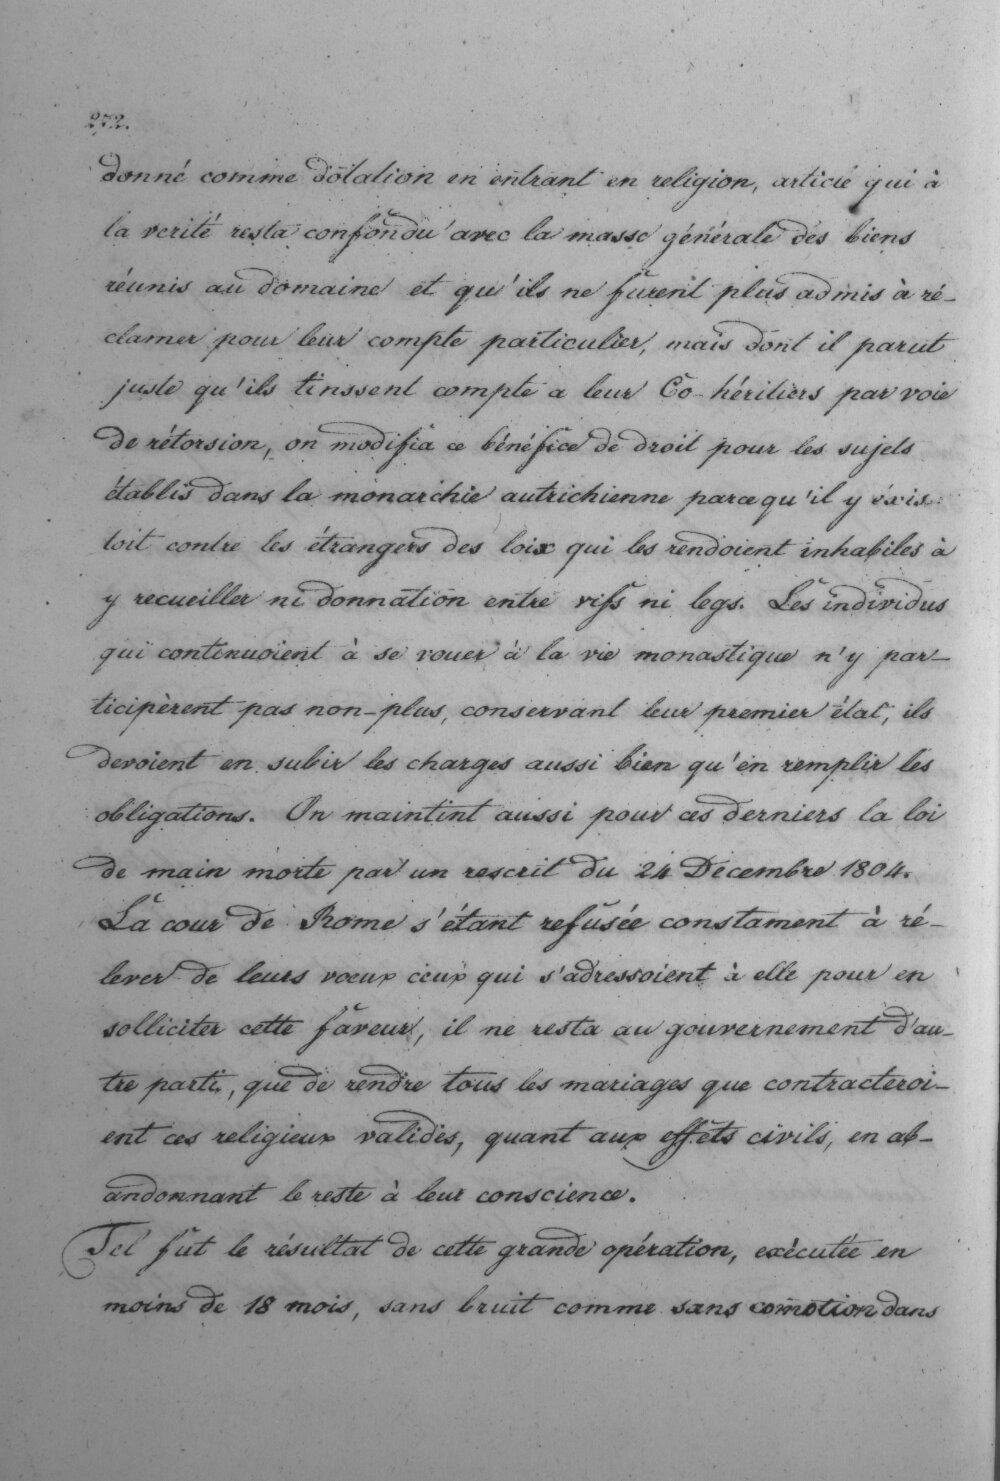 272.
donné comme dotation en entrant en religion, article qui à
la verité resta confondu avec la masse générale des biens
réunis au domaine et qu'ils ne furent plus admis à ré-
clamer pour leur compte particulier, mais dont il parut
juste qu'ils tinssent compte a leur Co-héritiers par voie
de rétorsion, on modifia ce bénéfice de droit pour les sujets
établis dans la monarchie autrichienne parcequ'il y éxis-
toit contre les étrangers des loix qui les rendoient inhabiles à
y recueiller ni donnation entre vifs ni legs. Les individus
qui continuoient à se vouer à la vie monastique n'y par-
ticipèrent pas non-plus, conservant leur premier état, ils
devoient en subir les charges aussi bien qu'en remplir les
obligations. On maintint aussi pour ces derniers la loi
de main morte par un rescrit du 24 Décembre 1804.
La cour de Rome s'étant refusée constament à ré-
lever de leurs voeux ceux qui s'adressoient à elle pour en
solliciter cette faveur, il ne resta au gouvernement d'au-
tre parti, que de rendre tous les mariages que contracteroi-
ent ces religieux valides, quant aux effets civils, en ab-
andonnant le reste à leur conscience.
Tel fut le résultat de cette grande opération, exécutée en
moins de 18 mois, sans bruit comme sans com̄otion dans